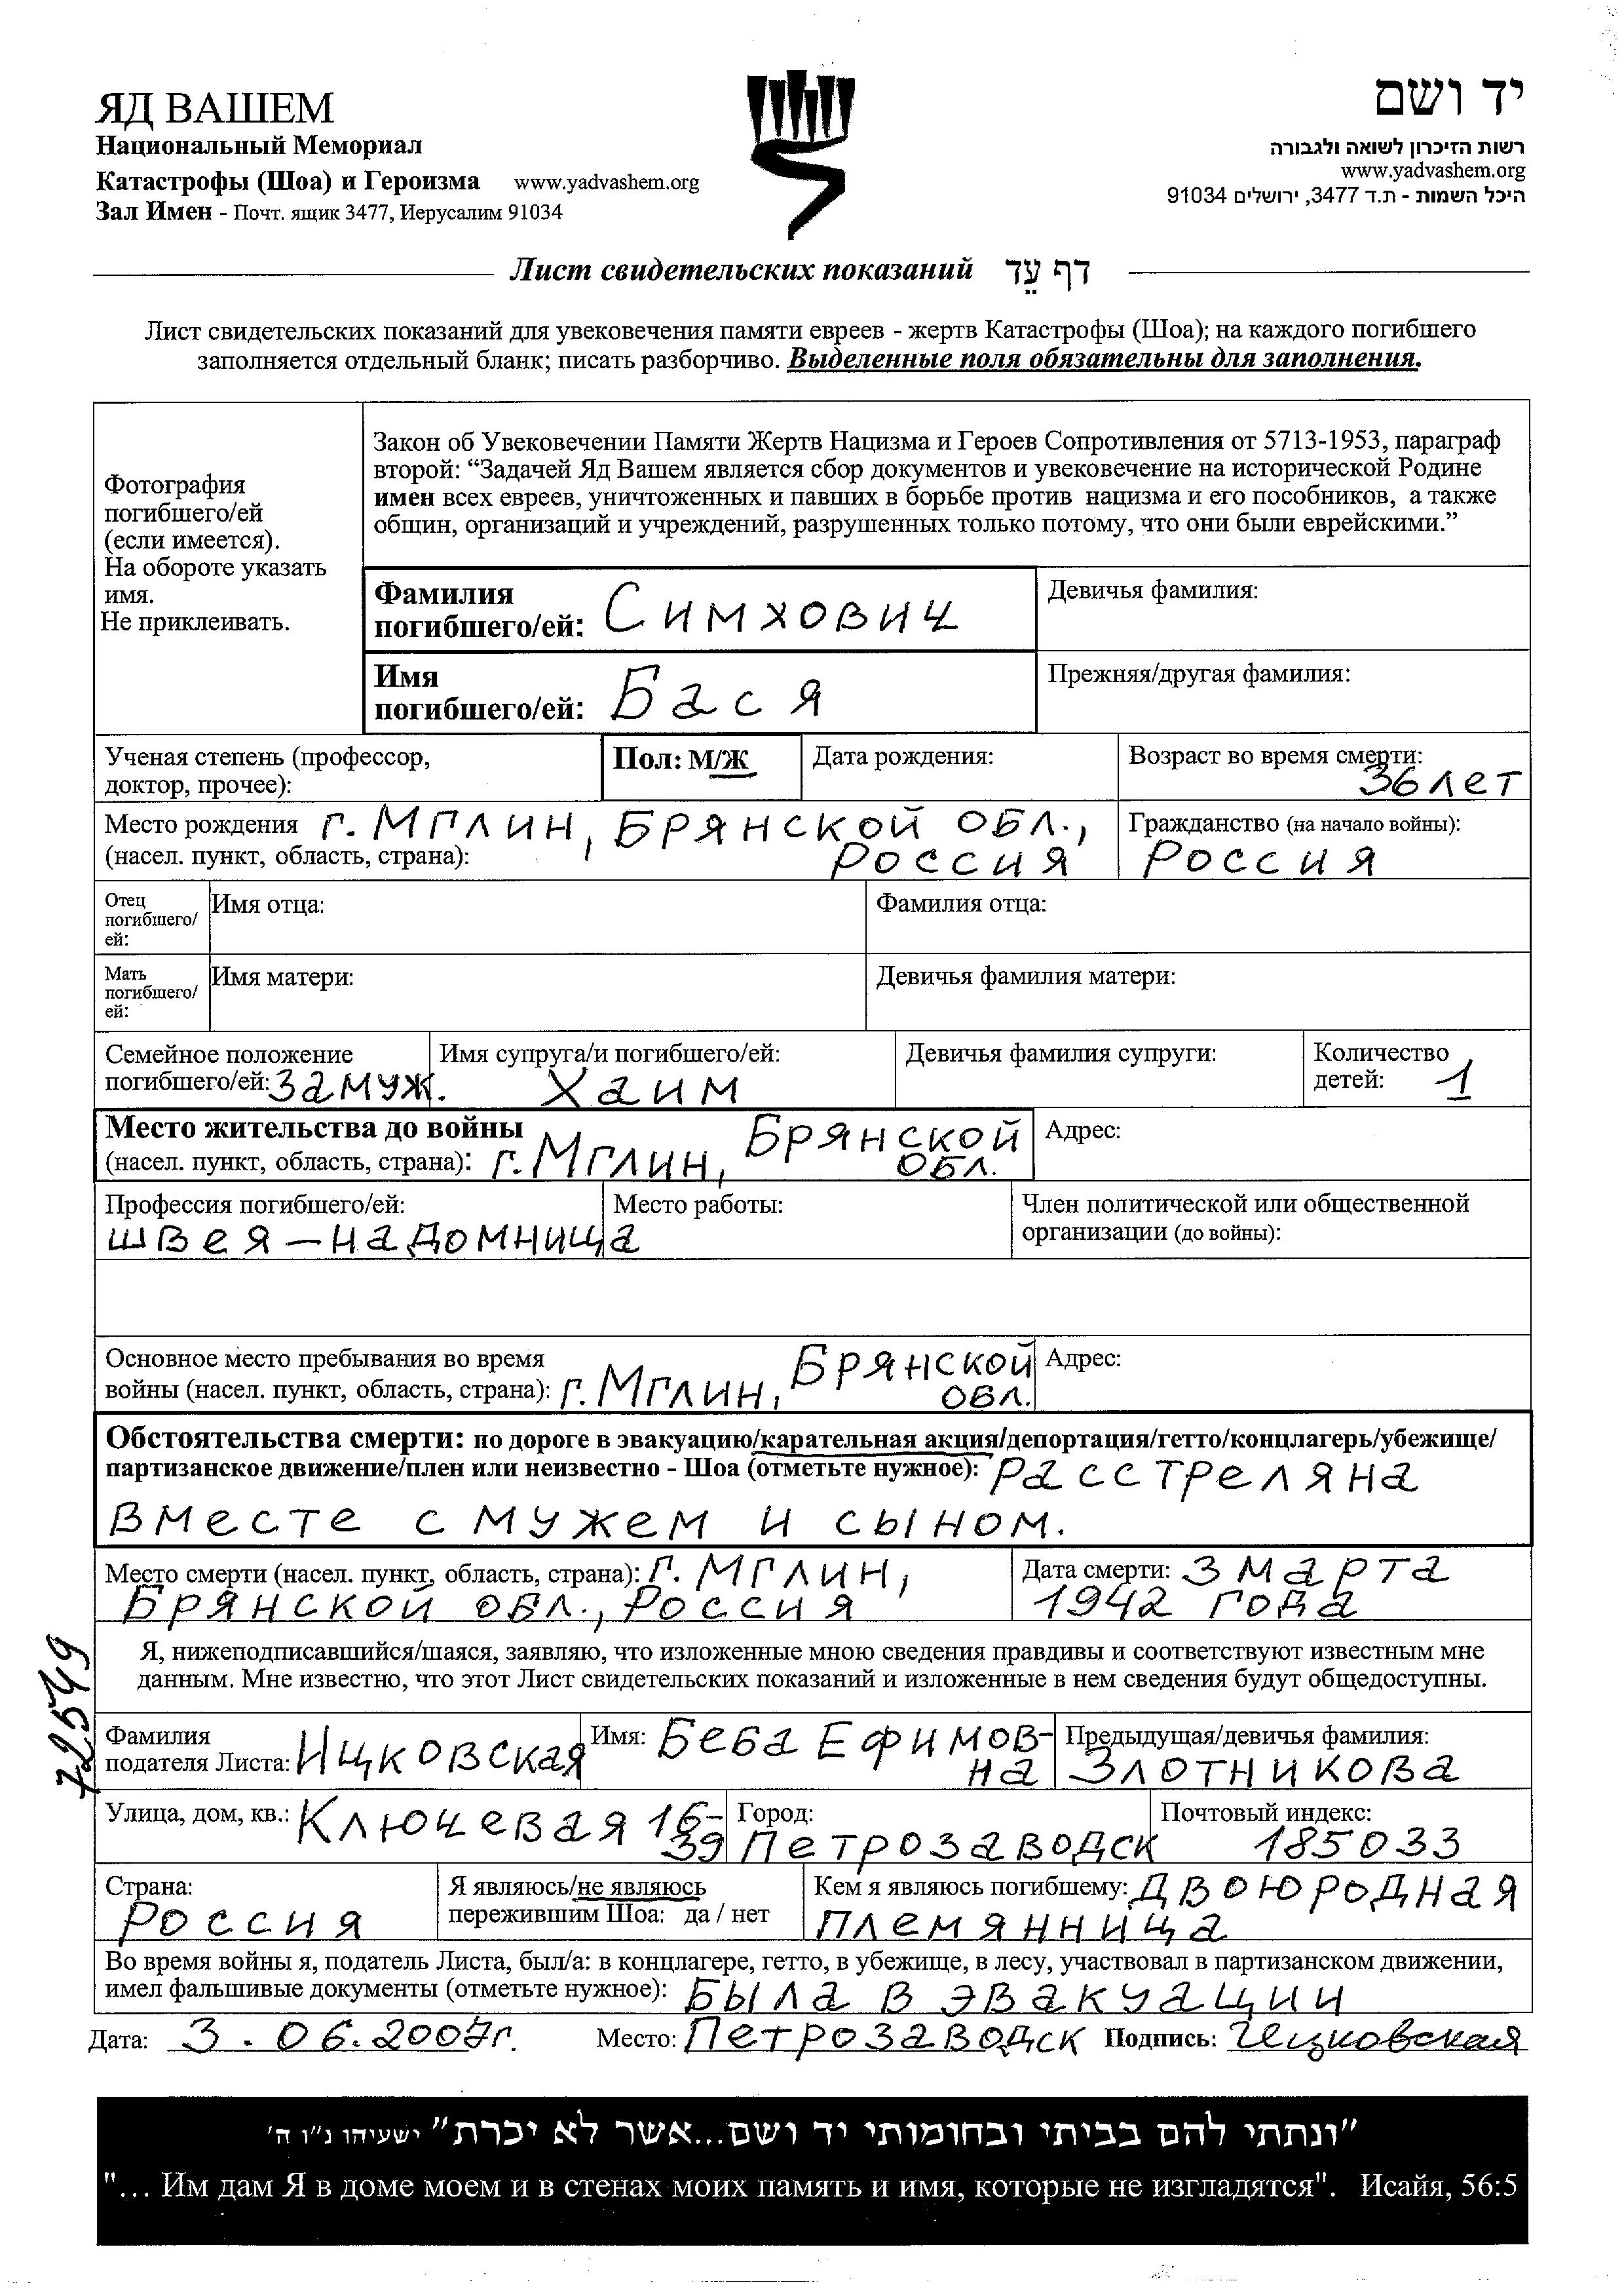 ЯД ВАШЕМ
Национальный Мемориал
Катастрофы (Шоа) и Героизма www.yadvashem.org
Зал Имен - Почт. ящик 3477, Иерусалим 91034
יד ושם
רשות הזיכרון לשואה ולגבורה
www.yadvashem.org
היכל השמות - ת.ד 3477, ירושלים 91034
Лист свидетельских показаний דף עֵד
Лист свидетельских показаний для увековечения памяти евреев - жертв Катастрофы (Шоа); на каждого погибшего
заполняется отдельный бланк; писать разборчиво. Выделенные поля обязательны для заполнения.
Фотография
погибшего/ей
(если имеется).
На обороте указать
имя.
Не приклеивать.
Закон об Увековечении Памяти Жертв Нацизма и Героев Сопротивления от 5713-1953, параграф
второй: “Задачей Яд Вашем является сбор документов и увековечение на исторической Родине
имен всех евреев, уничтоженных и павших в борьбе против нацизма и его пособников, а также
общин, организаций и учреждений, разрушенных только потому, что они были еврейскими.”
Фамилия
погибшего/ей: Симхович
Девичья фамилия:
Имя
погибшего/ей: Бася
Прежняя/другая фамилия:
Ученая степень (профессор,
доктор, прочее):
Пол: М/Ж
Дата рождения:
Возраст во время смерти:
36 лет
Место рождения г. Мглин, Брянской обл.,
(насел. пункт, область, страна): Россия
Гражданство (на начало войны):
Россия
Отец
погибшего/
ей:
Имя отца:
Фамилия отца:
Мать
погибшего/
ей:
Имя матери:
Девичья фамилия матери:
Семейное положение
погибшего/ей: замуж.
Имя супруга/и погибшего/ей:
Хаим
Девичья фамилия супруги:
Количество
детей: 1
Место жительства до войны
(насел. пункт, область, страна): г. Мглин, Брянской
обл.
Адрес:
Профессия погибшего/ей:
швея-надомница
Место работы:
Член политической или общественной
организации (до войны):
Основное место пребывания во время
войны (насел. пункт, область, страна): г. Мглин, Брянской
обл.
Адрес:
Обстоятельства смерти: по дороге в эвакуацию/карательная акция/депортация/гетто/концлагерь/убежище/
партизанское движение/плен или неизвестно - Шоа (отметьте нужное): расстреляна
вместе с мужем и сыном.
Место смерти (насел. пункт, область, страна): г. Мглин,
Брянской обл., Россия
Дата смерти: 3 марта
1942 года
Я, нижеподписавшийся/шаяся, заявляю, что изложенные мною сведения правдивы и соответствуют известным мне
данным. Мне известно, что этот Лист свидетельских показаний и изложенные в нем сведения будут общедоступны.
72549
Фамилия
подателя Листа: Ицковская
Имя: Беба Ефимов-
на
Предыдущая/девичья фамилия:
Злотникова
Улица, дом, кв.: Ключевая 16-
39
Город:
Петрозаводск
Почтовый индекс:
185033
Страна:
Россия
Я являюсь/не являюсь
пережившим Шоа: да / нет
Кем я являюсь погибшему: двоюродная
племянница
Во время войны я, податель Листа, был/а: в концлагере, гетто, в убежище, в лесу, участвовал в партизанском движении,
имел фальшивые документы (отметьте нужное): была в эвакуации
Дата: 3.06.2007г. Место: Петрозаводск Подпись: Ицковская
"ונתתי להם בביתי ובחומותי יד ושם...אשר לא יכרת" ישעיהו נ"ו ה'
"... Им дам Я в доме моем и в стенах моих память и имя, которые не изгладятся". Исайя, 56:5